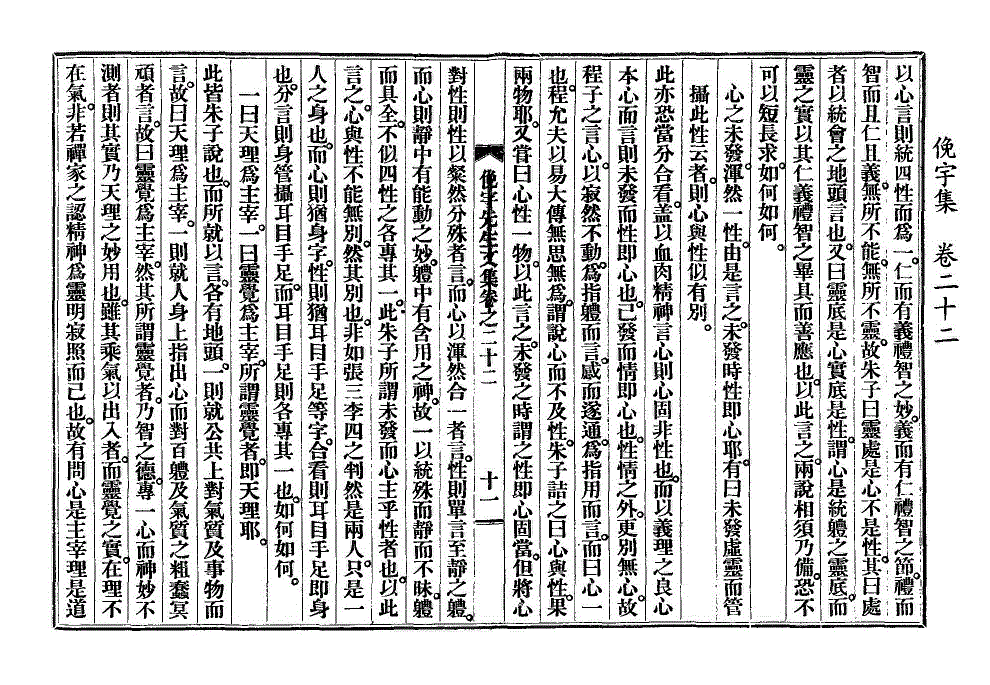 俛宇集 卷二十二
以心言則統四性而爲一。仁而有義禮智之妙。義而有仁禮智之節。禮而
智而且仁且義。無所不能。無所不靈。故朱子曰靈處是心不是性。其曰處
者以統會之地頭言也。又曰靈底是心實底是性。謂心是統體之靈底。而
靈之實以其仁義禮智之畢具而善應也。以此言之。兩說相須乃備。恐不
可以短長求。如何如何。
心之未發。渾然一性。由是言之。未發時性卽心耶。有曰未發虛靈而管
攝此性云者。則心與性似有別。
此亦恐當分合看。蓋以血肉精神言心則心固非性也。而以義理之良心
本心而言則未發而性卽心也。已發而情卽心也。性情之外。更別無心。故
程子之言心。以寂然不動。爲指體而言。感而遂通。爲指用而言。而曰心一
也。程允夫以易大傳無思無爲。謂說心而不及性。朱子詰之曰心與性。果
兩物耶。又嘗曰心性一物。以此言之。未發之時謂之性卽心固當。但將心
俛宇先生文集卷之二十二 十一
對性則性以粲然分殊者言。而心以渾然合一者言。性則單言至靜之體。
而心則靜中有能動之妙。體中有含用之神。故一以統殊而靜而不昧。體
而具全。不似四性之各專其一。此朱子所謂未發而心主乎性者也。以此
言之。心與性不能無別。然其別也。非如張三李四之判然是兩人。只是一
人之身也。而心則猶身字。性則猶耳目手足等字。合看則耳目手足卽身
也。分言則身管攝耳目手足。而耳目手足則各專其一也。如何如何。
一曰天理爲主宰。一曰靈覺爲主宰。所謂靈覺者。卽天理耶。
此皆朱子說也。而所就以言。各有地頭。一則就公共上對氣質及事物而
言。故曰天理爲主宰。一則就人身上指出心而對百體及氣質之粗蠢冥
頑者言。故曰靈覺爲主宰。然其所謂靈覺者。乃智之德。專一心而神妙不
測者則其實乃天理之妙用也。雖其乘氣以出入者。而靈覺之實。在理不
在氣。非若禪家之認精神爲靈明寂照而已也。故有問心是主宰理是道